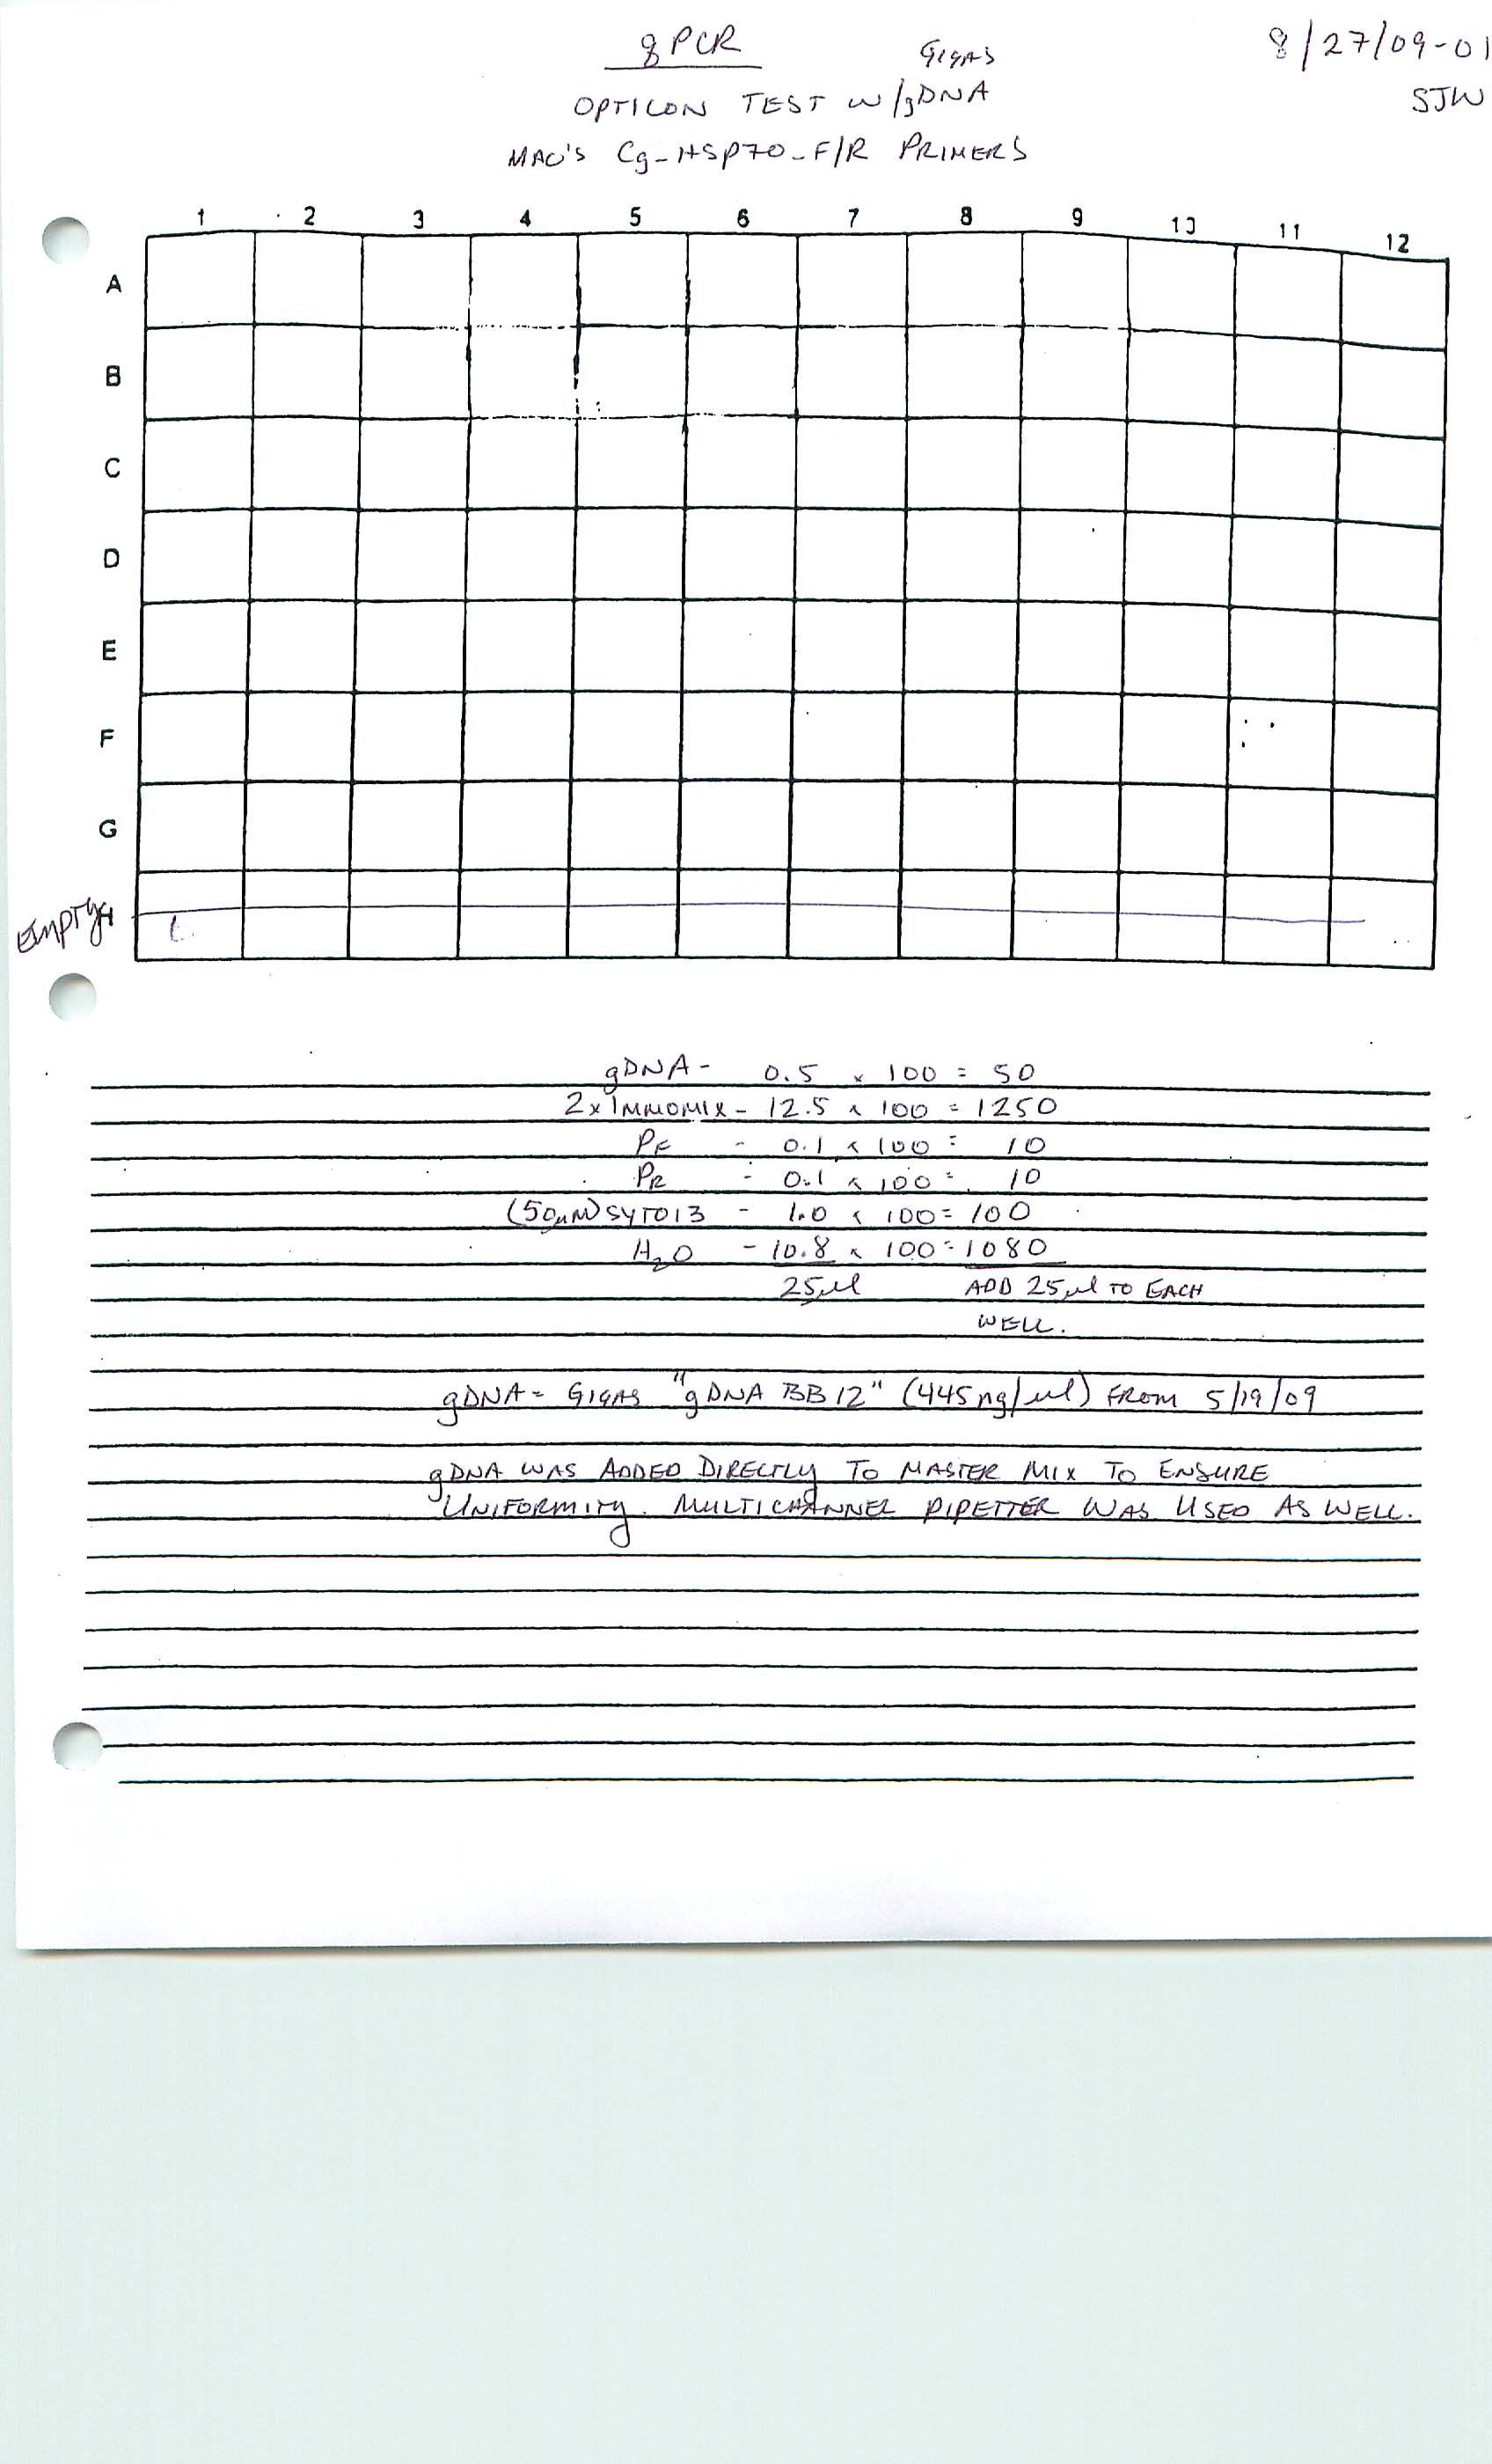 qPCR
Gigas
8/27/09-01
OPTICON TEST W/gDNA
SJW
MAC'S Cg-HSP70-F/R PRIMERS
1 2 3 4 5 6 7 8 9 10 11 12
A
B
C
D
E
F
G
Empty H
gDNA - 0.5 x 100 = 50
2x IMMOMIX - 12.5 x 100 = 1250
PF - 0.1 x 100 = 10
PR - 0.1 x 100 = 10
(50µM) SYTO13 - 1.0 x 100 = 100
H2O - 10.8 x 100 = 1080
25µl ADD 25µl TO EACH
WELL.
gDNA = GIGAS "gDNA BB12" (445ng/ul) FROM 5/19/09
gDNA WAS ADDED DIRECTLY TO MASTER MIX TO ENSURE
UNIFORMITY. MULTICHANNEL PIPETTER WAS USED AS WELL.